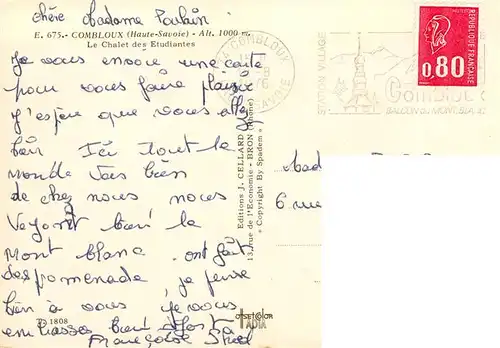 chère Madame Poulain
E. 675.- COMBLOUX (Haute-Savoie) - Alt. 1000 m.
Le Chalet des Etudiantes
Je vous envoie une carte
pour vous faire plaisir
J'espère que vous allez
bien Ici tout la
monde vais bien
de chez nous nous
Voyont bien la
Mont blanc. ont fait
des promenade, je pense
bien à vous je vous
embrasse bien fort
Françoise
T. 1808
Editions J. CELLARD
13, rue de l'Economie - BRON (Rhône)
« Copyright By Spadem »
offsetcolor
IADIA
COMBLOUX
HTE SAVOIE
STATION VILLAGE
Combloux
BALCON DU MONT-BLANC
REPUBLIQUE FRANÇAISE
0,80
6 rue